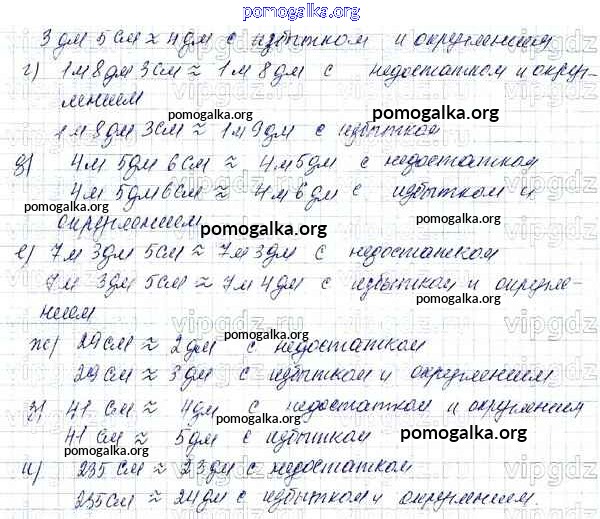 pomogalka.org
3 дм 5 см ≈ 4 дм с избытком и округлением
г) 1 м 8 дм 3 см ≈ 1 м 8 дм с недостатком и округ-
лением
pomogalka.org pomogalka.org
1 м 8 дм 3 см ≈ 1 м 9 дм с избытком
д) 4 м 5 дм 6 см ≈ 4 м 5 дм с недостатком
4 м 5 дм 6 см ≈ 4 м 6 дм с избытком и
pomogalka.org
округлением
pomogalka.org pomogalka.org
е) 7 м 3 дм 5 см ≈ 7 м 3 дм с недостатком
7 м 3 дм 5 см ≈ 7 м 4 дм с избытком и округле-
pomogalka.org
нием
vipgdz vipgdz vipgdz
pomogalka.org
ж) 29 см ≈ 2 дм с недостатком
29 см ≈ 3 дм с избытком и округлением
pomogalka.org
з) 41 см ≈ 4 дм с недостатком и округлением
41 см ≈ 5 дм с избытком
pomogalka.org
и) 235 см ≈ 23 дм с недостатком
235 см ≈ 24 дм с избытком и округлением.
pomogalka.org